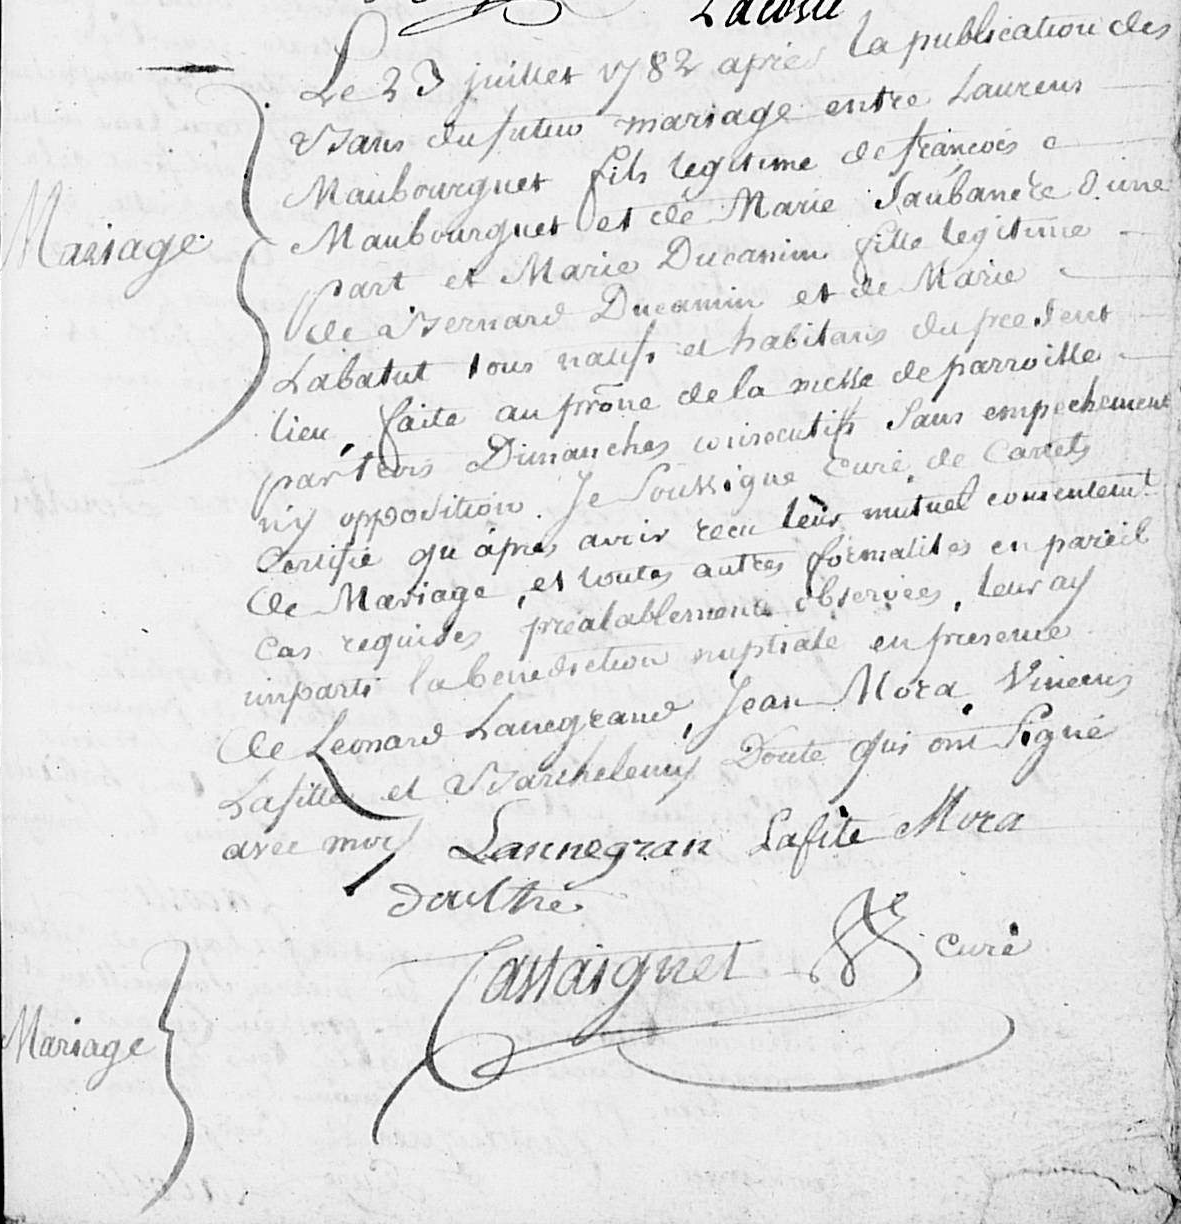 Lacoste
Le 23 juillet 1782 après la publication des
Bans du futur mariage entre Laurens
Mariage
Maubourguet fils legitime de françois
Maubourguet et de Marie Saubanere d'une
part et Marie Ducamin fille legitime
de Bernard Ducamin et de Marie
Labatut tous natifs et habitans du present
lieu, faite au prône de la messe de parroisse
par trois Dimanches consecutifs sans empechement
n'y opposition. Je soussigne Curé de
Certifie qu'àpres avoir recu leur mutuel consentemt
de Mariage, et toutes autres formalites en pareil
cas requises préalablement observées, leur ay
imparti la benediction nuptiale en presence
de Leonard Lanegrand, Jean Mora Vincens
Lafitte et Barthelemy Doute qui ont signé
avec moy Lannegran Lafite Mora
daulthe
Castaignet curé
Mariage